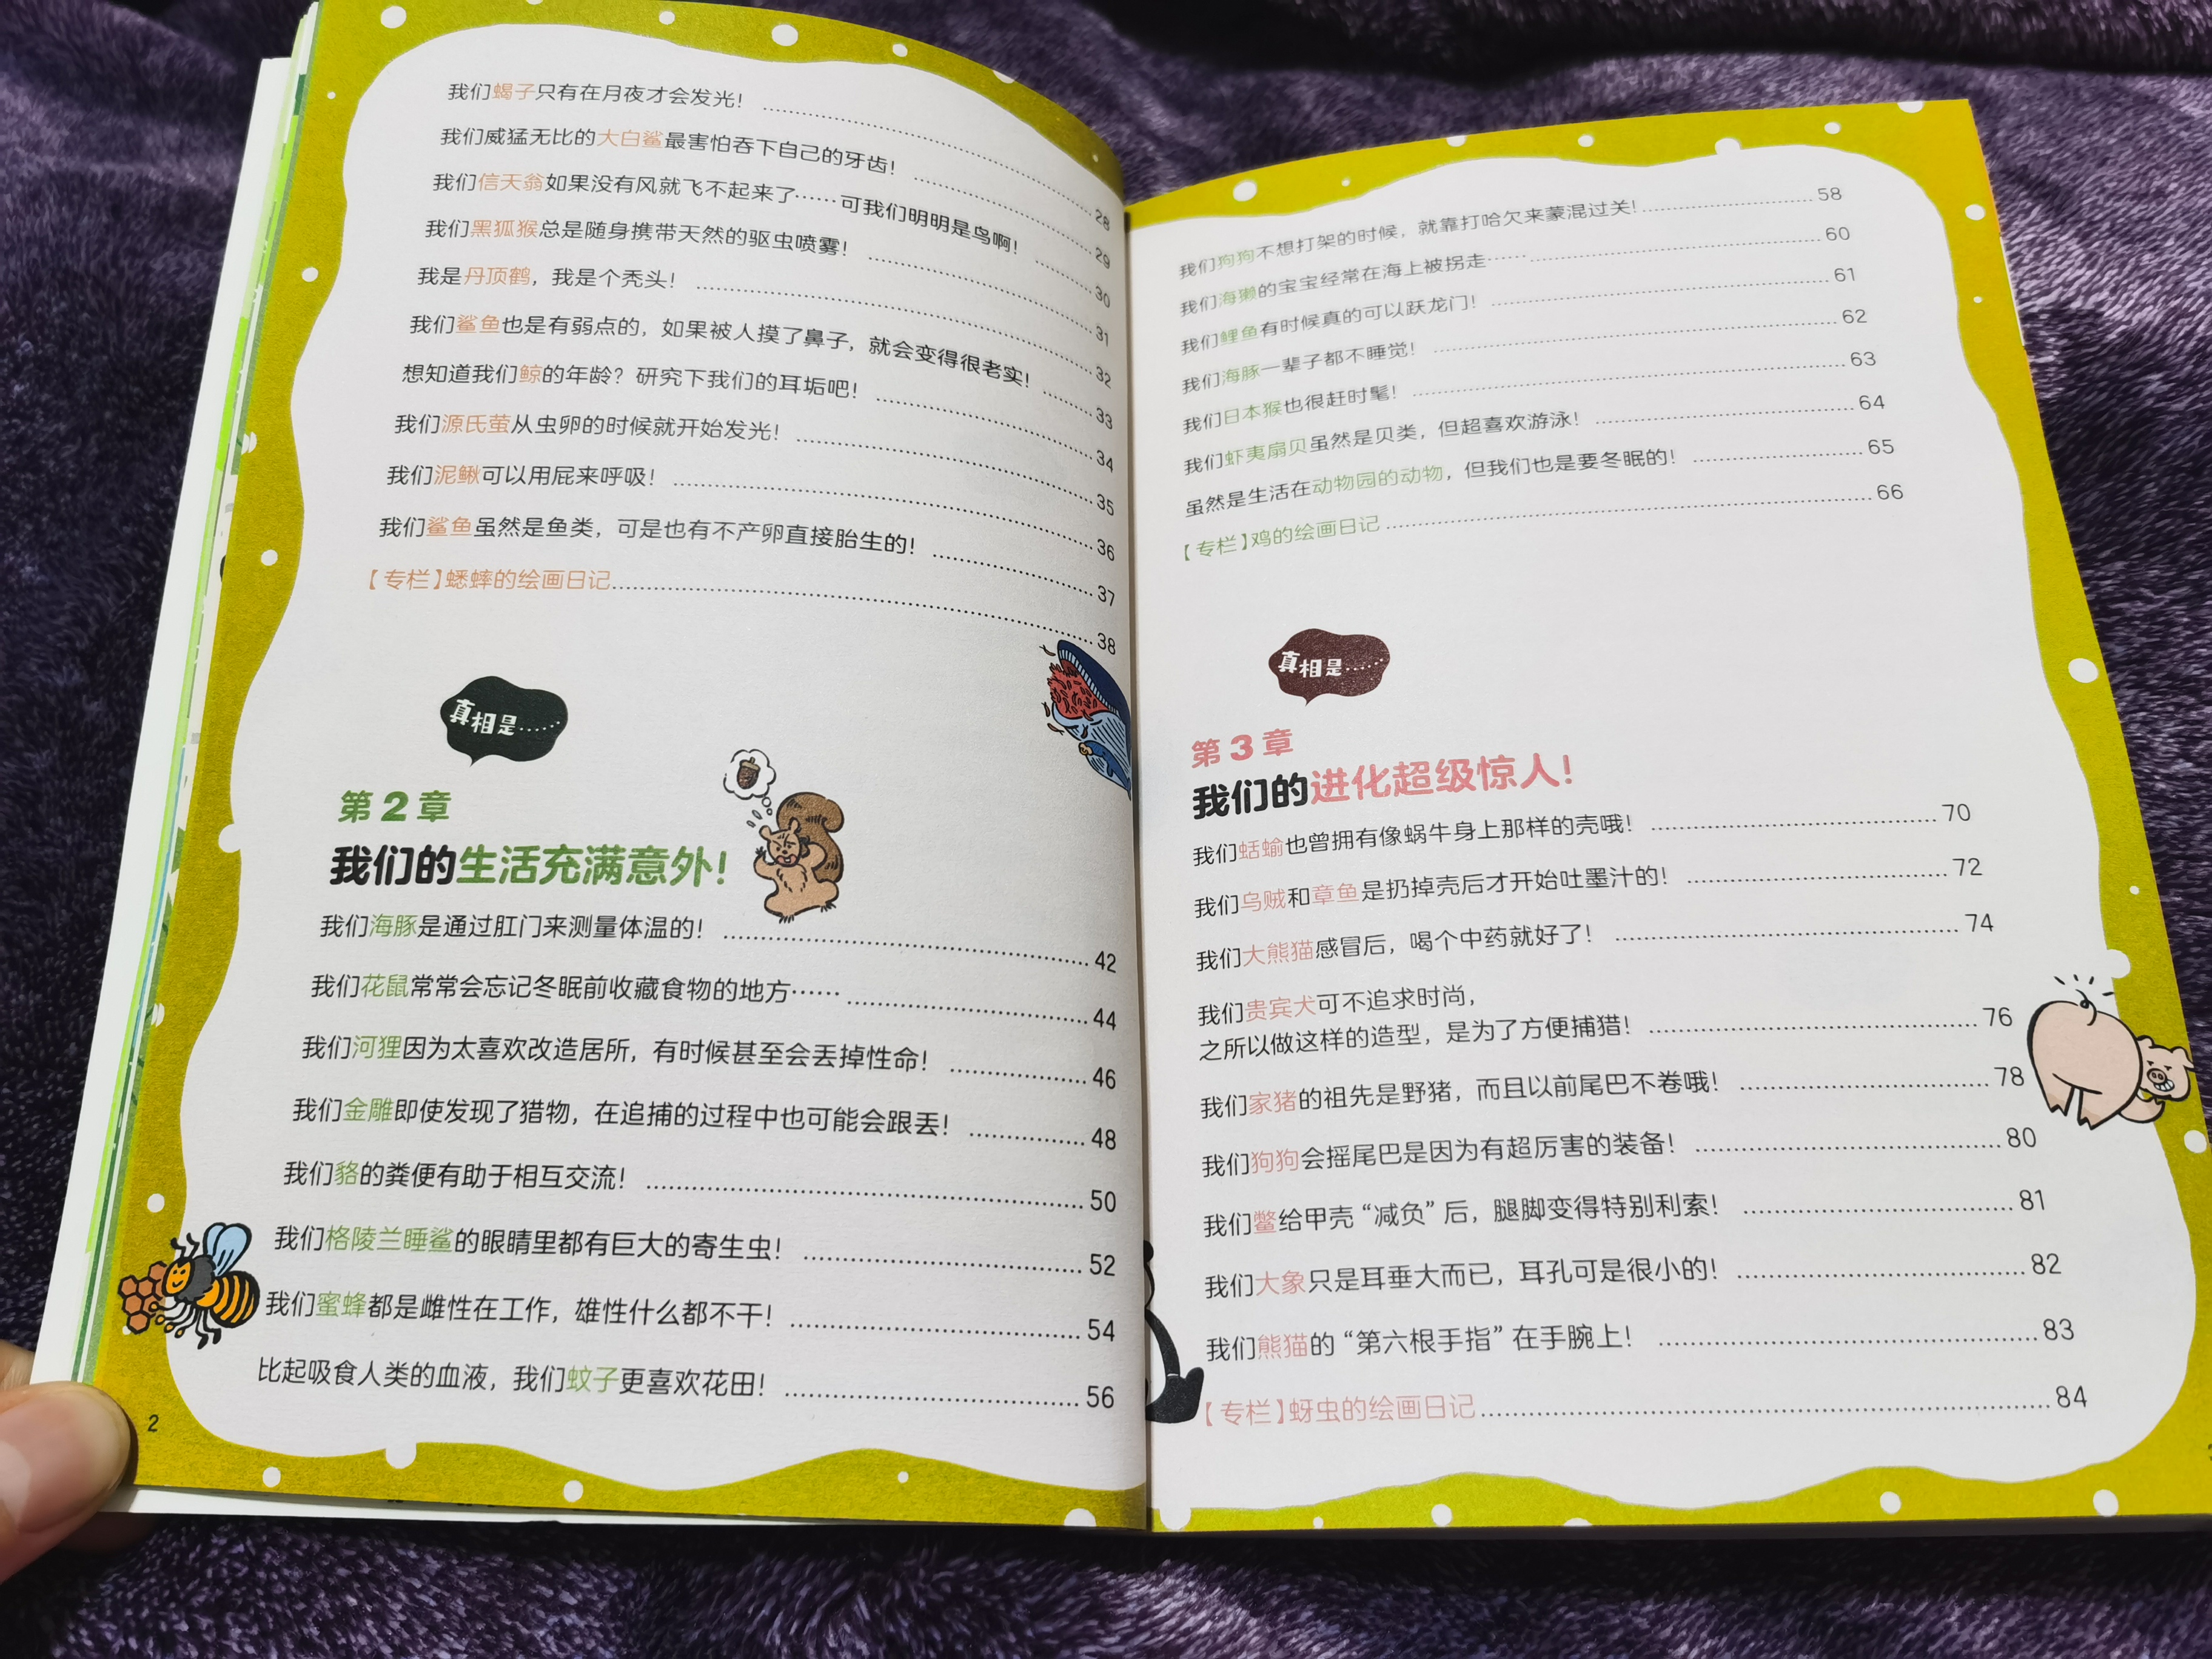 我们蝎子只有在月夜才会发光！ 28
我们威猛无比的大白鲨最害怕吞下自己的牙齿！ 29
我们信天翁如果没有风就飞不起来了……可我们明明是鸟啊！ 30
我们黑狐猴总是随身携带天然的驱虫喷雾！ 31
我是丹顶鹤，我是个秃头！ 32
我们鲨鱼也是有弱点的，如果被人摸了鼻子，就会变得很老实！ 33
想知道我们鲸的年龄？研究下我们的耳垢吧！ 34
我们源氏萤从虫卵的时候就开始发光！ 35
我们泥鳅可以用屁来呼吸！ 36
我们鲨鱼虽然是鱼类，可是也有不产卵直接胎生的！ 37
【专栏】蟋蟀的绘画日记 38
真相是……
第2章
我们的生活充满意外！
我们海豚是通过肛门来测量体温的！ 42
我们花鼠常常会忘记冬眠前收藏食物的地方…… 44
我们河狸因为太喜欢改造居所，有时候甚至会丢掉性命！ 46
我们金雕即使发现了猎物，在追捕的过程中也可能会跟丢！ 48
我们貉的粪便有助于相互交流！ 50
我们格陵兰睡鲨的眼睛里都有巨大的寄生虫！ 52
我们蜜蜂都是雌性在工作，雄性什么都不干！ 54
比起吸食人类的血液，我们蚊子更喜欢花田！ 56
2
我们狗狗不想打架的时候，就靠打哈欠来蒙混过关！ 58
我们海獭的宝宝经常在海上被拐走…… 60
我们鲤鱼有时候真的可以跃龙门！ 61
我们海豚一辈子都不睡觉！ 62
我们日本猴也很赶时髦！ 63
我们虾夷扇贝虽然是贝类，但超喜欢游泳！ 64
虽然是生活在动物园的动物，但我们也是要冬眠的！ 65
【专栏】鸡的绘画日记 66
真相是……
第3章
我们的进化超级惊人！
我们蛞蝓也曾拥有像蜗牛身上那样的壳哦！ 70
我们乌贼和章鱼是扔掉壳后才开始吐墨汁的！ 72
我们大熊猫感冒后，喝个中药就好了！ 74
我们贵宾犬可不追求时尚，
之所以做这样的造型，是为了方便捕猎！ 76
我们家猪的祖先是野猪，而且以前尾巴不卷哦！ 78
我们狗狗会摇尾巴是因为有超厉害的装备！ 80
我们鳖给甲壳“减负”后，腿脚变得特别利索！ 81
我们大象只是耳垂大而已，耳孔可是很小的！ 82
我们熊猫的“第六根手指”在手腕上！ 83
【专栏】蚜虫的绘画日记 84